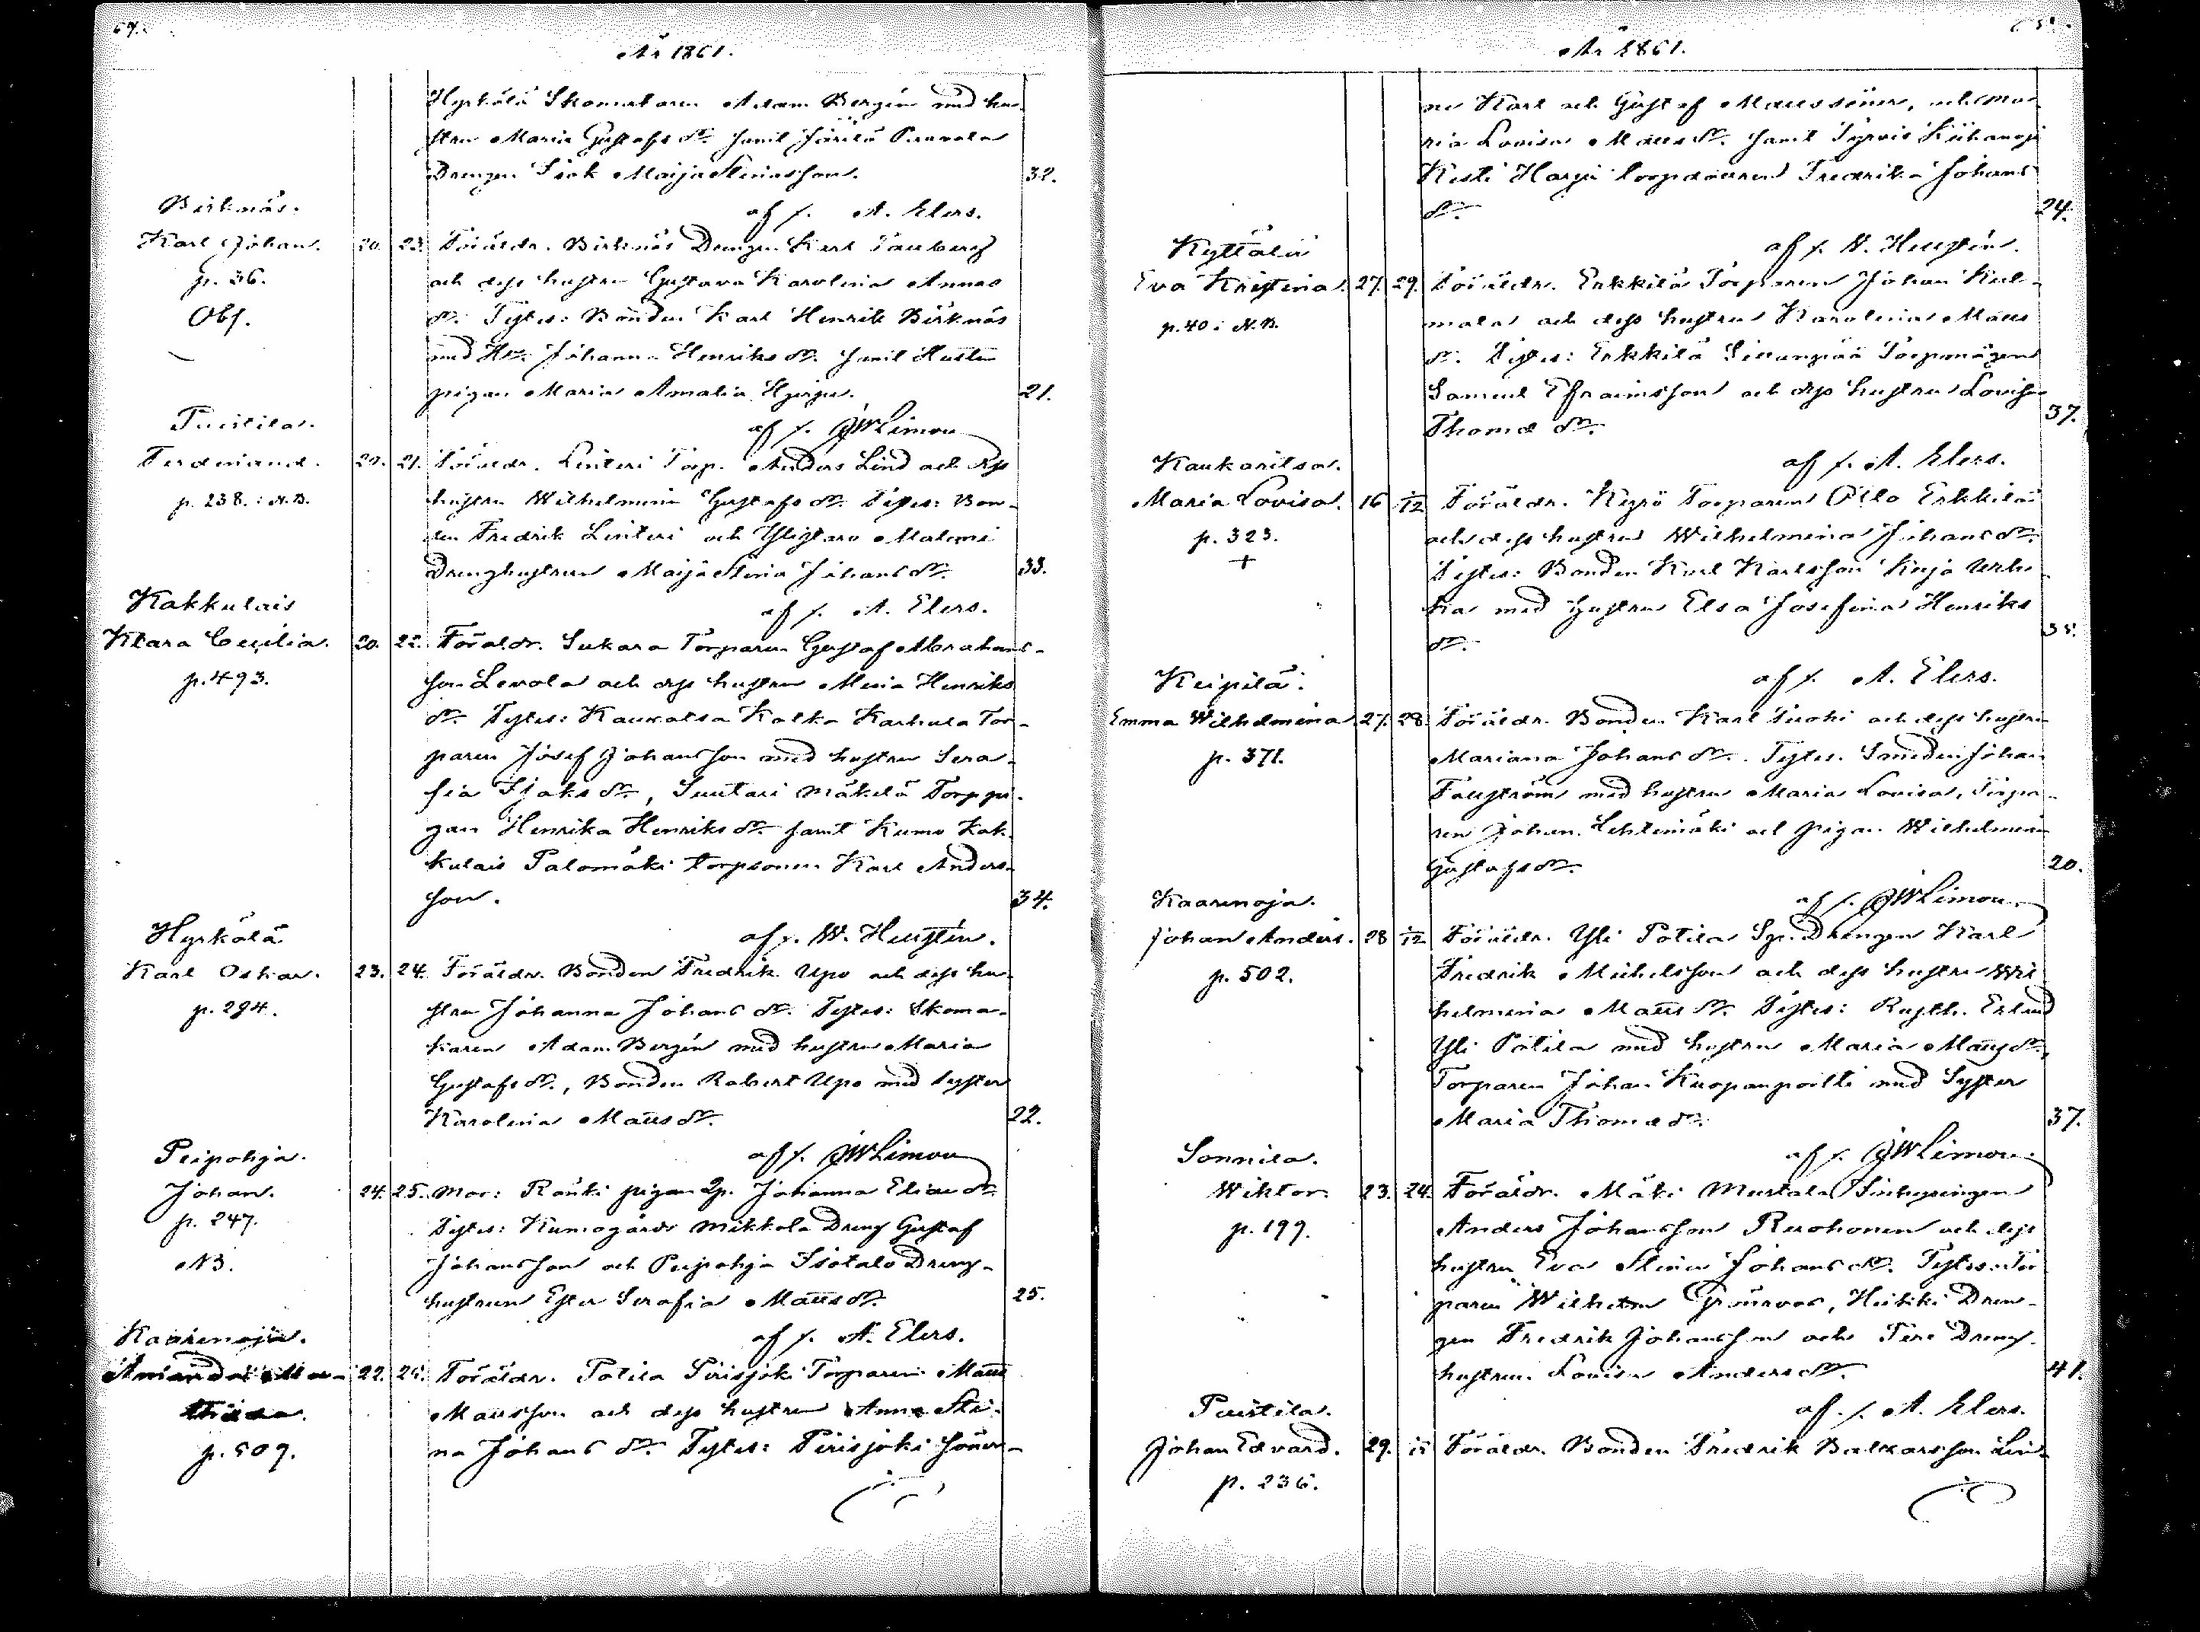 År 1861.
Hyrkölä Skomakaren Adam Bergén med hu-
stru Maria Gustafs dr. samt Järilä Pravola
Drengen Isak Maija Stinasson.
32.
af f. A. Elers.
Birknäs.
Karl Johan.
p. 36.
Obs.
20. 23. Föräldr. Birknäs Drengen Karl Tauberg
och dess hustru Gustava Karolina Annas
dr. Testes: Bonden Karl Henrik Birknäs
med Hu. Johanna Henriks dr. samt
pigan Maria Amalia
21.
af f. JWLimon
Puistila.
Ferdinand.
p. 238. i N.B.
20. 21. Föräldr. Linteri Torp. Anders Lind och dess
hustru Wilhelmina Gustafs dr. Testes: Bon-
den Fredrik Linteri och Ylistaro
Drenghustrun Maija Stina Johans dr.
33.
af f. A. Elers.
Kakkulais
Klara Cecilia.
p. 493.
20. 22. Föräldr. Sukara Torparen Gustaf Abrahams-
son Levola och dess hustru Maria Henriks
dr. Testes: Kauvatsa Kalka Karhula Tor-
paren Josef Johansson med hustru Sera-
fia Isaks dr., Suutari Mäkelä Torppi-
gan Henrika Henriks dr. samt Kumo Kak-
kulais Palomäki torpsonen Karl Anders-
son.
34.
af f. W. Heustén.
Hyrkölä
Karl Oskar.
p. 294.
23. 24. Föräldr. Bonden Fredrik Upo och dess hu-
stru Johanna Johans dr. Testes: Skoma-
karen Adam Bergén med hustru Maria
Gustafs dr., Bonden Robert Upo med syster
Karolina Matts dr.
22.
af f. JWLimon
Peipohja.
Johan.
p. 247.
NB.
24. 25. Mor: Ronki pigan Johanna Elias dr.
Testes: Kumogårds Mikkola Dreng Gustaf
Johansson och Peipohja Isotalo Dreng-
hustrun Ester Serafia Matts dr.
25.
af f. A. Elers.
Kaarenoja.
Amanda Ma-
thilda.
p. 509.
22. 26. Föräldr. Potila Pirisjoki Torparen Matts
Mattsson och dess hustru Anna Sti-
na Johans dr. Testes: Pirisjoki söner-
År 1861.
ne Karl och Gustaf Mattssöner, och Ma-
ria Lovisa Matts dr. samt Tyrvis Kiihanoja
Kesti Harju torpdottren Fredrika Johans
dr.
24.
af f. W. Heustén.
Kyttälä
Eva Kristina.
p. 40 i N.B.
27. 29. Föräldr. Erkkilä Torparen Johan Kul-
mala och dess hustru Karolina Matts
dr. Testes: Erkkilä Torpmågen
Samuel Efraimsson och dess hustru Lovisa
Thomæ dr.
37.
af f. A. Elers.
Kaukaritsa.
Maria Lovisa.
p. 323.
+
16 1/12 Föräldr. Kyrö Torparen Otto Erkkilä
och dess hustru Wilhelmina Johans dr.
Testes: Bonden Karl Karlsson
med hustru Elsa Josefina Henriks
dr.
35.
af f. A. Elers.
Keipilä.
Emma Wilhelmina
p. 371.
27. 28. Föräldr. Bonden Karl Pirohi och dess hustru
Mariana Johans dr. Testes. Smeden Johan
Fagström med hustru Maria Lovisa, Torpa-
ren Johan Lehtimäki och pigan Wilhelmina
Gustafs dr.
20.
af f. JWLimon
Kaarenoja.
Johan Anders.
p. 502.
28 1/12 Föräldr. Yli Potila Drengen Karl
Fredrik Michelsson och dess hustru Wil-
helmina Matts dr. Testes: Rusth. Erland
Yli Potila med hustru Maria Matts dr.,
Torparen Johan Kuopanpoitti med Syster
Maria Thomæ dr.
37.
af f. JWLimon
Sonnila.
Wiktor.
p. 199.
23. 24. Föräldr. Mäki Mustala Inhysingen
Anders Johansson Ruohonen och dess
hustru Eva Stina Johans dr. Testes: Tor-
paren Wilhelm Grönroos, Heikki Dren-
gen Fredrik Johansson och Pere Dreng-
hustrun Lovisa Anders dr.
41.
af f. A. Elers.
Puistila.
Johan Edvard.
p. 236.
29. Föräldr. Bonden Fredrik Baltzarsson Lin-